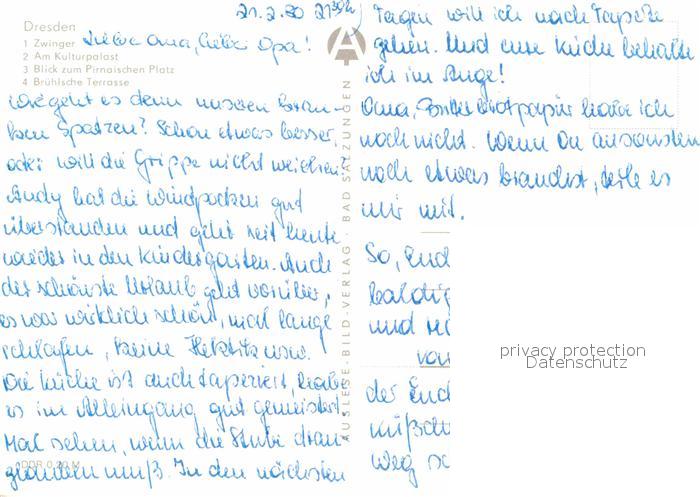 Dresden
1 Zwinger
2 Am Kulturpalast
3 Blick zum Pirnaischen Platz
4 Brühlsche Terrasse
21.2.80 21³⁰h
Liebe Oma, lieber Opa!
Wie geht es denn unseren kran-
ken Spatzen? Schon etwas besser,
oder will die Grippe nicht weichen?
Andy hat die Windpocken gut
überstanden und geht seit heute
wieder in den Kindergarten. Auch
der schönste Urlaub geht vorüber,
es war wirklich schön, mal lange
schlafen, keine Hektik usw.
Die Küche ist auch tapeziert, habe
es im Alleingang gut gemeistert.
Mal sehen, wenn die Stube dran
glauben muß. In den nächsten
DDR 0,20 M
AUSLESE-BILD-VERLAG · BAD SALZUNGEN
Tagen will ich nach Tapete
gehen. Und eure Küche behalte
ich im Auge!
Oma, Butterbrotpapier habe ich
noch nicht. Wenn Du ansonsten
noch etwas brauchst, teile es
mir mit.
So, End
baldig
und
von
der End
weg
privacy protection
Datenschutz